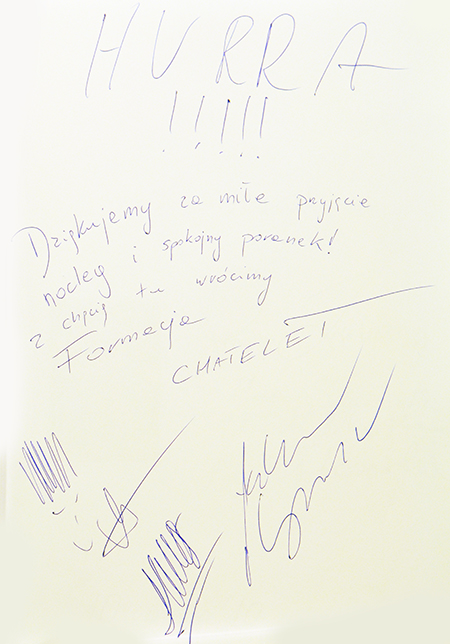 HURRA
!!!!!
Dziękujemy za miłe przyjęcie
nocleg i spokojny poranek!
z chęcią tu wrócimy
Formacja
CHATELET